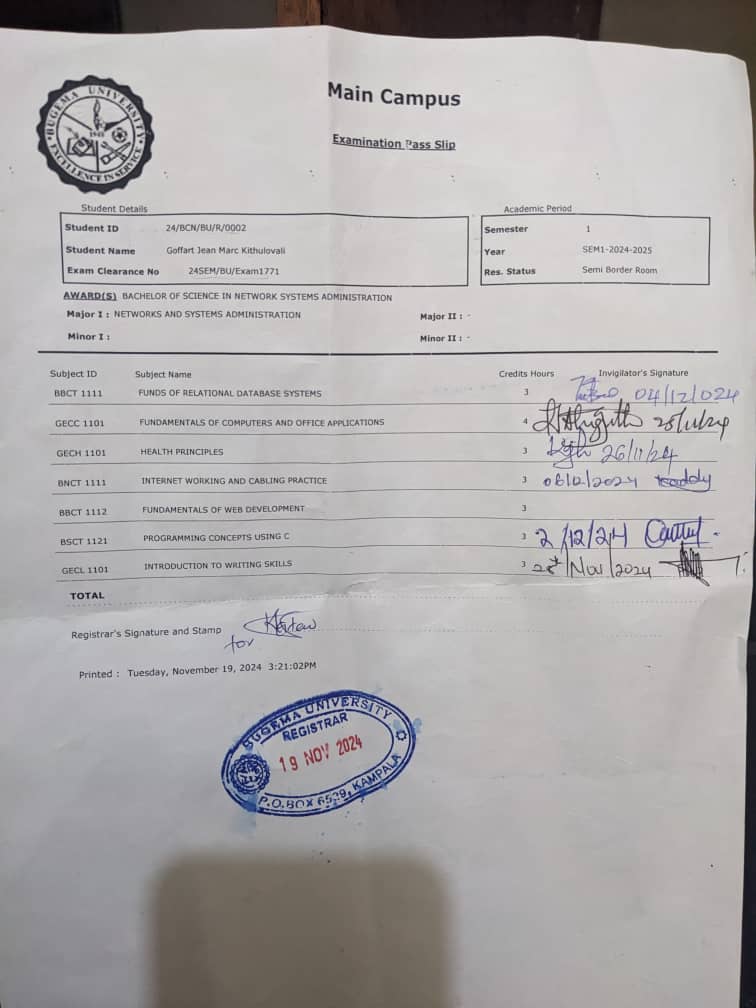 BUGEMA UNIVERSITY
EXCELLENCE IN SERVICE
Main Campus
Examination Pass Slip
Student Details
Student ID 24/BCN/BU/R/0002
Student Name Goffart Jean Marc Kithulovali
Exam Clearance No 24SEM/BU/Exam1771
Academic Period
Semester 1
Year SEM1-2024-2025
Res. Status Semi Border Room
AWARD(S) BACHELOR OF SCIENCE IN NETWORK SYSTEMS ADMINISTRATION
Major I : NETWORKS AND SYSTEMS ADMINISTRATION Major II : -
Minor I : Minor II : -
Subject ID Subject Name Credits Hours Invigilator's Signature
BBCT 1111 FUNDS OF RELATIONAL DATABASE SYSTEMS 3 04/12/2024
GECC 1101 FUNDAMENTALS OF COMPUTERS AND OFFICE APPLICATIONS 4 25/11/24
GECH 1101 HEALTH PRINCIPLES 3 26/11/24
BNCT 1111 INTERNET WORKING AND CABLING PRACTICE 3 06/12/2024
BBCT 1112 FUNDAMENTALS OF WEB DEVELOPMENT 3
BSCT 1121 PROGRAMMING CONCEPTS USING C 3 2/12/24
GECL 1101 INTRODUCTION TO WRITING SKILLS 3 Nov/2024
TOTAL
Registrar's Signature and Stamp
for
Printed : Tuesday, November 19, 2024 3:21:02PM
BUGEMA UNIVERSITY
REGISTRAR
19 NOV 2024
P.O.BOX 6529, KAMPALA